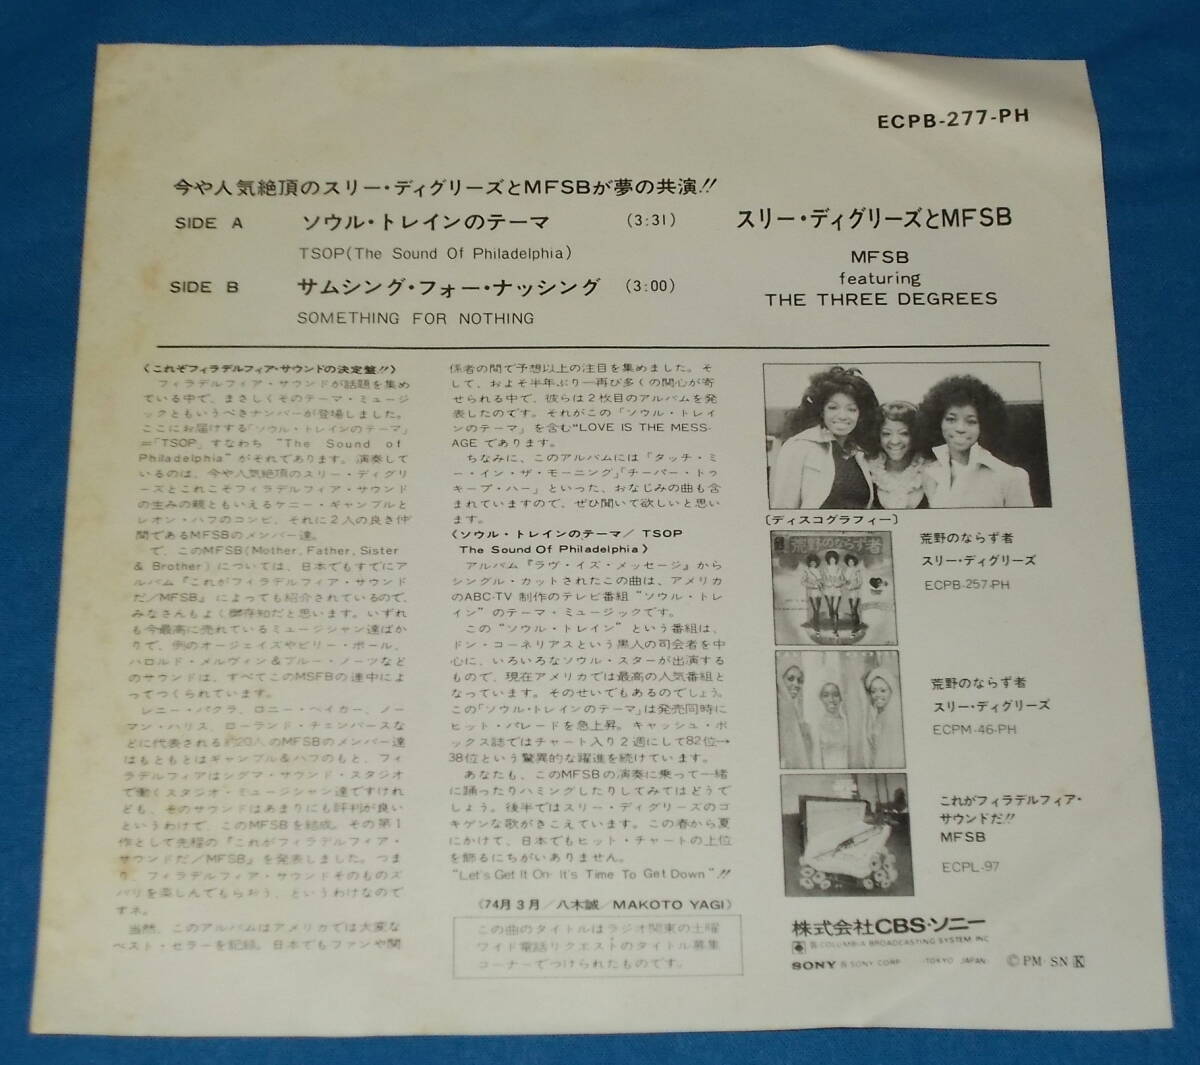 ECPB-277-PH
今や人気絶頂のスリー・ディグリーズとMFSBが夢の共演!!
SIDE A ソウル・トレインのテーマ (3:31)
TSOP(The Sound Of Philadelphia)
SIDE B サムシング・フォー・ナッシング (3:00)
SOMETHING FOR NOTHING
スリー・ディグリーズとMFSB
MFSB
featuring
THE THREE DEGREES
〈これぞフィラデルフィア・サウンドの決定盤!!〉
フィラデルフィア・サウンドが話題を集め
ている中で、まさしくそのテーマ・ミュージ
ックともいうべきナンバーが登場しました。
ここにお届けする「ソウル・トレインのテーマ」
=「TSOP」すなわち "The Sound of
Philadelphia"がそれであります。演奏して
いるのは、今や人気絶頂のスリー・ディグリ
ーズとこれこそフィラデルフィア・サウンド
の生みの親ともいえるケニー・ギャンブルと
レオン・ハフのコンビ、それに2人の良き仲
間であるMFSBのメンバー達。
で、このMFSB(Mother, Father, Sister
& Brother)については、日本でもすでにア
ルバム『これがフィラデルフィア・サウンド
だ/MFSB』によっても紹介されているので、
みなさんもよく御存知だと思います。いずれ
も今最高に売れているミュージシャン達ばか
りで、例のオージェイズやビリー・ポール、
ハロルド・メルヴィン&ブルー・ノーツなど
のサウンドは、すべてこのMSFBの連中によ
ってつくられています。
レニー・パクラ、ロニー・ベイカー、ノー
マン・ハリス、ローランド・チェンバースな
どに代表される約20人のMFSBのメンバー達
はもともとはギャンブル&ハフのもと、フィ
ラデルフィアはシグマ・サウンド・スタジオ
で働くスタジオ・ミュージシャン達ですけれ
ども、そのサウンドはあまりにも評判が良い
というわけで、このMFSBを結成。その第1
作として先程の『これがフィラデルフィア・
サウンドだ/MFSB』を発表しました。つま
り、フィラデルフィア・サウンドそのものズ
バリを楽しんでもらおう、というわけなので
すネ。
当然、このアルバムはアメリカでは大変な
ベスト・セラーを記録。日本でもファンや関
係者の間で予想以上の注目を集めました。そ
して、およそ半年ぶり一再び多くの関心が寄
せられる中で、彼らは2枚目のアルバムを発
表したのです。それがこの「ソウル・トレイ
ンのテーマ」を含む"LOVE IS THE MESS-
AGEであります。
ちなみに、このアルバムには「タッチ・ミ
ー・イン・ザ・モーニング」「チーパー・トゥ
キープ・ハー」といった、おなじみの曲も含
まれていますので、ぜひ聞いて欲しいと思い
ます。
〈ソウル・トレインのテーマ/TSOP
The Sound Of Philadelphia〉
アルバム『ラヴ・イズ・メッセージ』から
シングル・カットされたこの曲は、アメリカ
のABC-TV 制作のテレビ番組"ソウル・トレ
イン"のテーマ・ミュージックです。
この"ソウル・トレイン"という番組は、
ドン・コーネリアスという黒人の司会者を中
心に、いろいろなソウル・スターが出演する
もので、現在アメリカでは最高の人気番組と
なっています。そのせいでもあるのでしょう。
この「ソウル・トレインのテーマ」は発売同時に
ヒット・パレードを急上昇。キャッシュ・ボ
ックス誌ではチャート入り2週にして82位→
38位という驚異的な躍進を続けています。
あなたも、このMFSBの演奏に乗って一緒
に踊ったりハミングしたりしてみてはどうで
しょう。後半ではスリー・ディグリーズのゴ
キゲンな歌がきこえています。この春から夏
にかけて、日本でもヒット・チャートの上位
を飾るにちがいありません。
"Let's Get It On・It's Time To Get Down"!!
〈74月3月/八木誠/MAKOTO YAGI〉
この曲のタイトルはラジオ関東の土曜
ワイド電話リクエストのタイトル募集
コーナーでつけられたものです。
〔ディスコグラフィー〕
荒野のならず者
荒野のならず者
スリー・ディグリーズ
ECPB-257-PH
荒野のならず者
スリー・ディグリーズ
ECPM-46-PH
これがフィラデルフィア・
サウンドだ!!
MFSB
ECPL-97
株式会社CBS・ソニー
COLUMBIA BROADCASTING SYSTEM, INC
SONY SONY CORP. ・TOKYO JAPAN・ ⓒPM・SN K